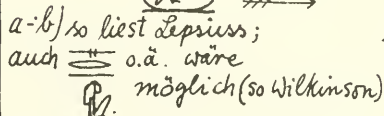 a-b) so liest Lepsius;
auch o.ä. wäre
möglich (so Wilkinson)